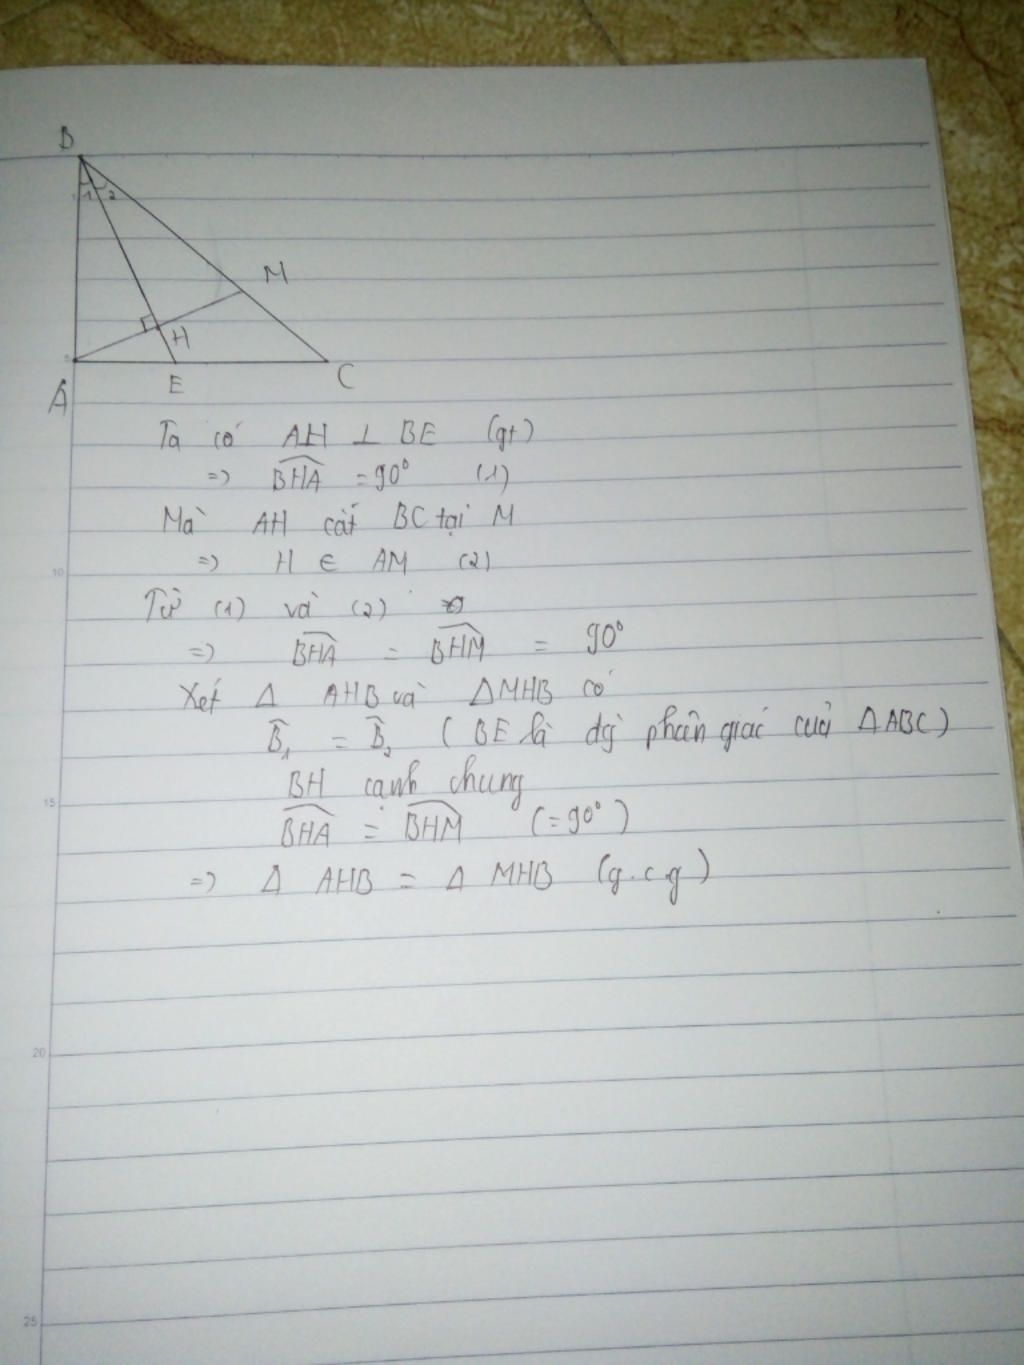 B
1 2
M
H
A E C
5
Ta có AH ⊥ BE (gt)
=> BHA = 90° (1)
Mà AH cắt BC tại M
10 => H ∈ AM (2)
Từ (1) và (2)
=> BHA = BHM = 90°
Xét Δ AHB và ΔMHB có
B̂₁ = B̂₂ ( BE là đg phân giác cuả ΔABC)
15 BH cạnh chung
BHA = BHM (=90°)
=> Δ AHB = Δ MHB (g.c.g)
20
25